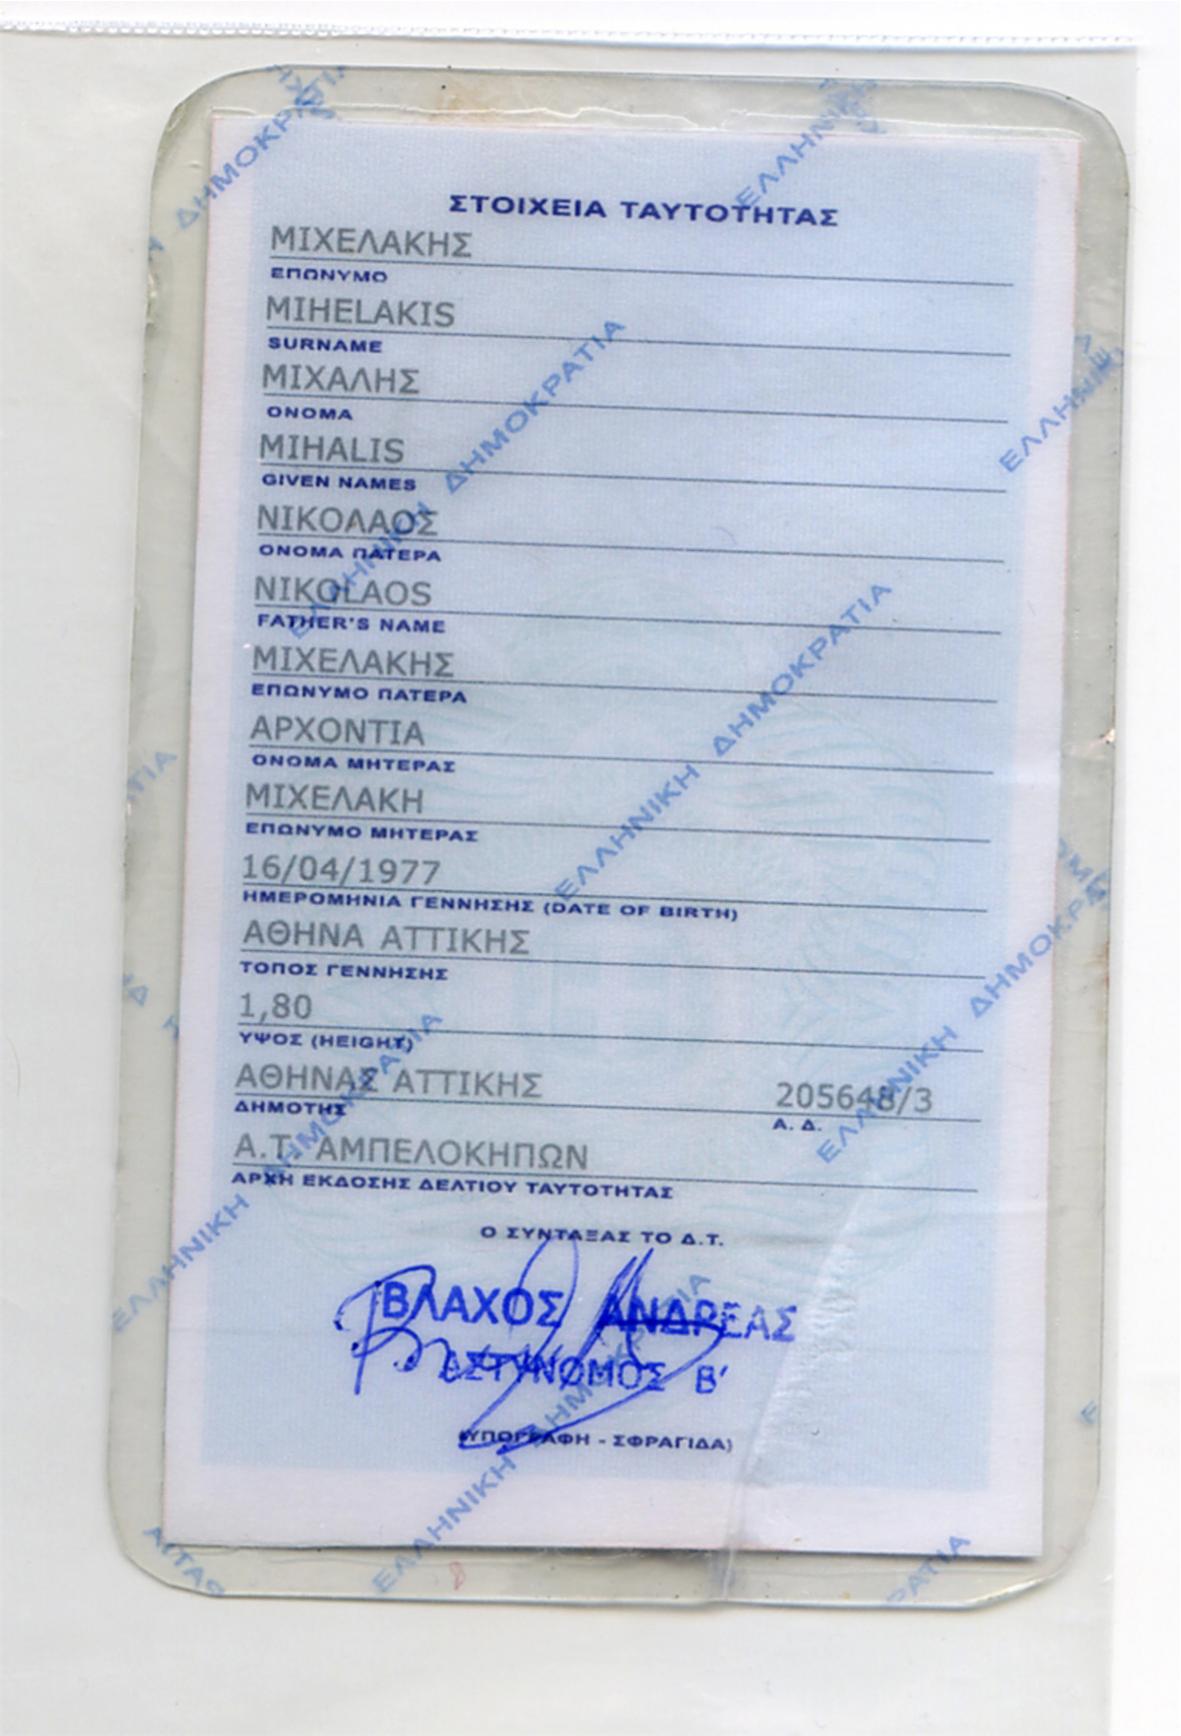 ΣΤΟΙΧΕΙΑ ΤΑΥΤΟΤΗΤΑΣ
ΜΙΧΕΛΑΚΗΣ
ΕΠΩΝΥΜΟ
MIHELAKIS
SURNAME
ΜΙΧΑΛΗΣ
ΟΝΟΜΑ
MIHALIS
GIVEN NAMES
ΝΙΚΟΛΑΟΣ
ΟΝΟΜΑ ΠΑΤΕΡΑ
NIKOLAOS
FATHER'S NAME
ΜΙΧΕΛΑΚΗΣ
ΕΠΩΝΥΜΟ ΠΑΤΕΡΑ
ΑΡΧΟΝΤΙΑ
ΟΝΟΜΑ ΜΗΤΕΡΑΣ
ΜΙΧΕΛΑΚΗ
ΕΠΩΝΥΜΟ ΜΗΤΕΡΑΣ
16/04/1977
ΗΜΕΡΟΜΗΝΙΑ ΓΕΝΝΗΣΗΣ (DATE OF BIRTH)
ΑΘΗΝΑ ΑΤΤΙΚΗΣ
ΤΟΠΟΣ ΓΕΝΝΗΣΗΣ
1,80
ΥΨΟΣ (HEIGHT)
ΑΘΗΝΑΣ ΑΤΤΙΚΗΣ 205648/3
ΔΗΜΟΤΗΣ Α. Δ.
Α.Τ. ΑΜΠΕΛΟΚΗΠΩΝ
ΑΡΧΗ ΕΚΔΟΣΗΣ ΔΕΛΤΙΟΥ ΤΑΥΤΟΤΗΤΑΣ
Ο ΣΥΝΤΑΞΑΣ ΤΟ Δ.Τ.
ΒΛΑΧΟΣ ΑΝΔΡΕΑΣ
ΑΣΤΥΝΟΜΟΣ Β'
(ΥΠΟΓΡΑΦΗ - ΣΦΡΑΓΙΔΑ)
ΕΛΛΗΝΙΚΗ ΔΗΜΟΚΡΑΤΙΑ
ΕΛΛΗΝΙΚΗ ΔΗΜΟΚΡΑΤΙΑ
ΕΛΛΗΝΙΚΗ ΔΗΜΟΚΡΑΤΙΑ
ΕΛΛΗΝΙΚΗ ΔΗΜΟΚΡΑΤΙΑ
ΕΛΛΗΝΙΚΗ ΔΗΜΟΚΡΑΤΙΑ